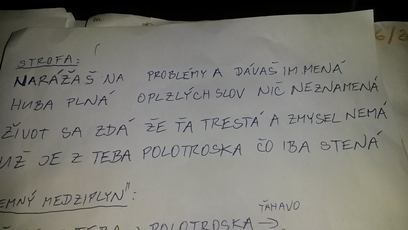 STROFA:
NARÁŽAŠ NA PROBLÉMY A DÁVAŠ IM MENÁ
HUBA PLNÁ OPLZLÝCH SLOV NIČ NEZNAMENÁ
ŽIVOT SA ZDÁ ŽE ŤA TRESTÁ A ZMYSEL NEMÁ
UŽ JE Z TEBA POLOTROSKA ČO IBA STENÁ
EMNÝ MEDZIPLYN":
ŤAHAVO
POLOTROSKA →